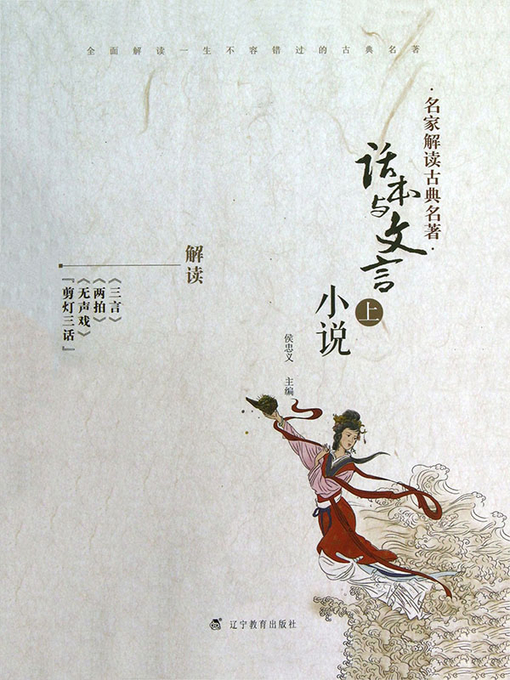 全面解读一生不容错过的古典名著
·名家解读古典名著·
话本与文言
上
小说
侯忠义 主编
解读
《三言》
《两拍》
《无声戏》
『剪灯三话』
辽宁教育出版社